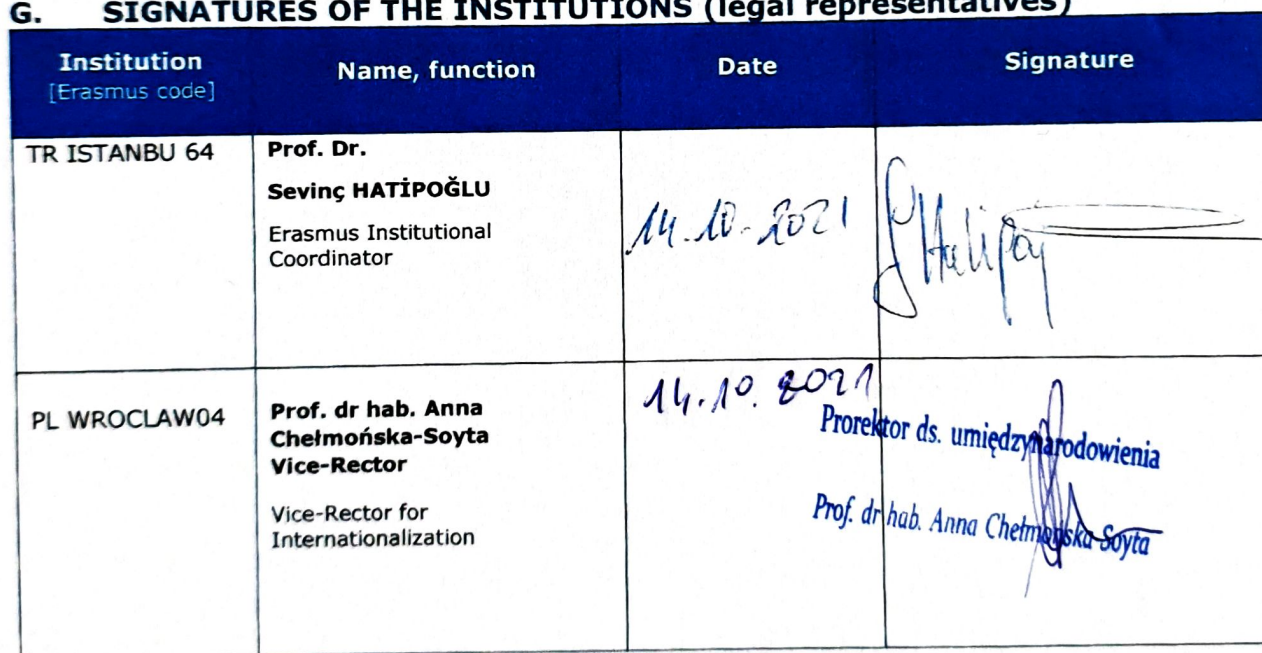 G. SIGNATURES OF THE INSTITUTIONS (legal representatives)
Institution
[Erasmus code]
Name, function
Date
Signature
TR ISTANBU 64
Prof. Dr.
Sevinç HATİPOĞLU
Erasmus Institutional
Coordinator
14.10.2021
PL WROCLAW04
Prof. dr hab. Anna
Chełmońska-Soyta
Vice-Rector
Vice-Rector for
Internationalization
14.10.2021
Prorektor ds. umiędzynarodowienia
Prof. dr hab. Anna Chełmońska-Soyta